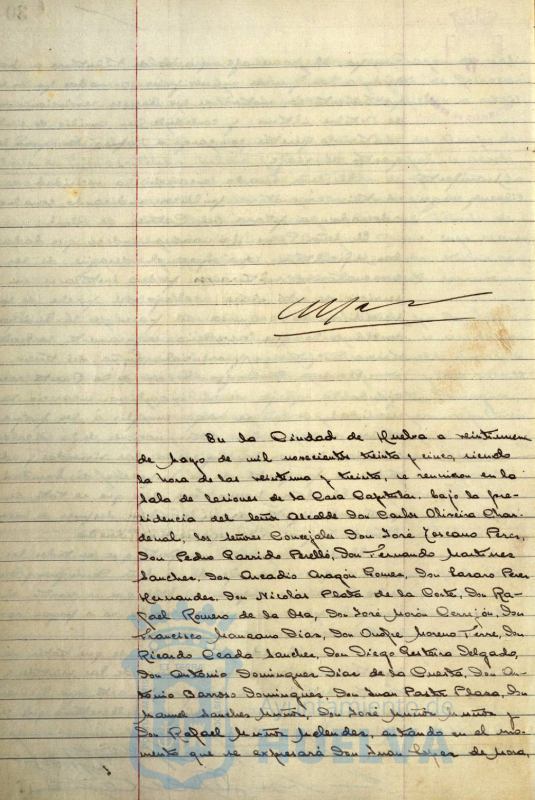 En la Ciudad de Huelva a veintinueve
de Mayo de mil novecientos treinta y cinco, siendo
la hora de las veintiuna y treinta, se reunieron en la
Sala de Sesiones de la Casa Capitular, bajo la pre-
sidencia del Señor Alcalde Don Carlos Oliveira Char-
denal, los señores Concejales Don José Toscano Perez,
Don Pedro Garrido Perelló, Don Fernando Martinez
Sanchez, Don Arcadio Aragón Gomez, Don Lazaro Perez
Hernandez, Don Nicolás Plata de la Corte, Don Ra-
fael Romero de la Osa, Don José Morón Cerrejón, Don
Francisco Manzano Dias, Don Onofre Moreno Terre, Don
Ricardo Ceada Sanchez, Don Diego Pertoira Delgado,
Don Antonio Dominguez Dias de la Cuesta, Don An-
tonio Barroso Dominguez, Don Juan Plaza, Don
Manuel Sanchez Muñoz, Don José Muñoz Muñoz y
Don Rafael Muñoz Melendez, entrando en el mo-
mento que se expresará Don Juan Lopez de Mora,
Ayuntamiento de